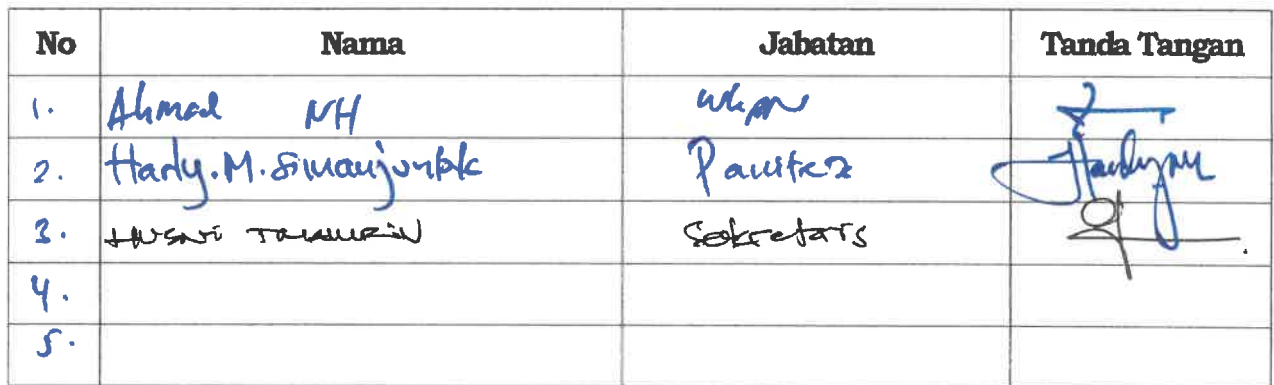 No Nama Jabatan Tanda Tangan
1. Ahmad NH WKPN
2. Hardy.M.Simanjuntak Panitera
3. HUSNI TAMMRIN Sekretaris
4.
5.